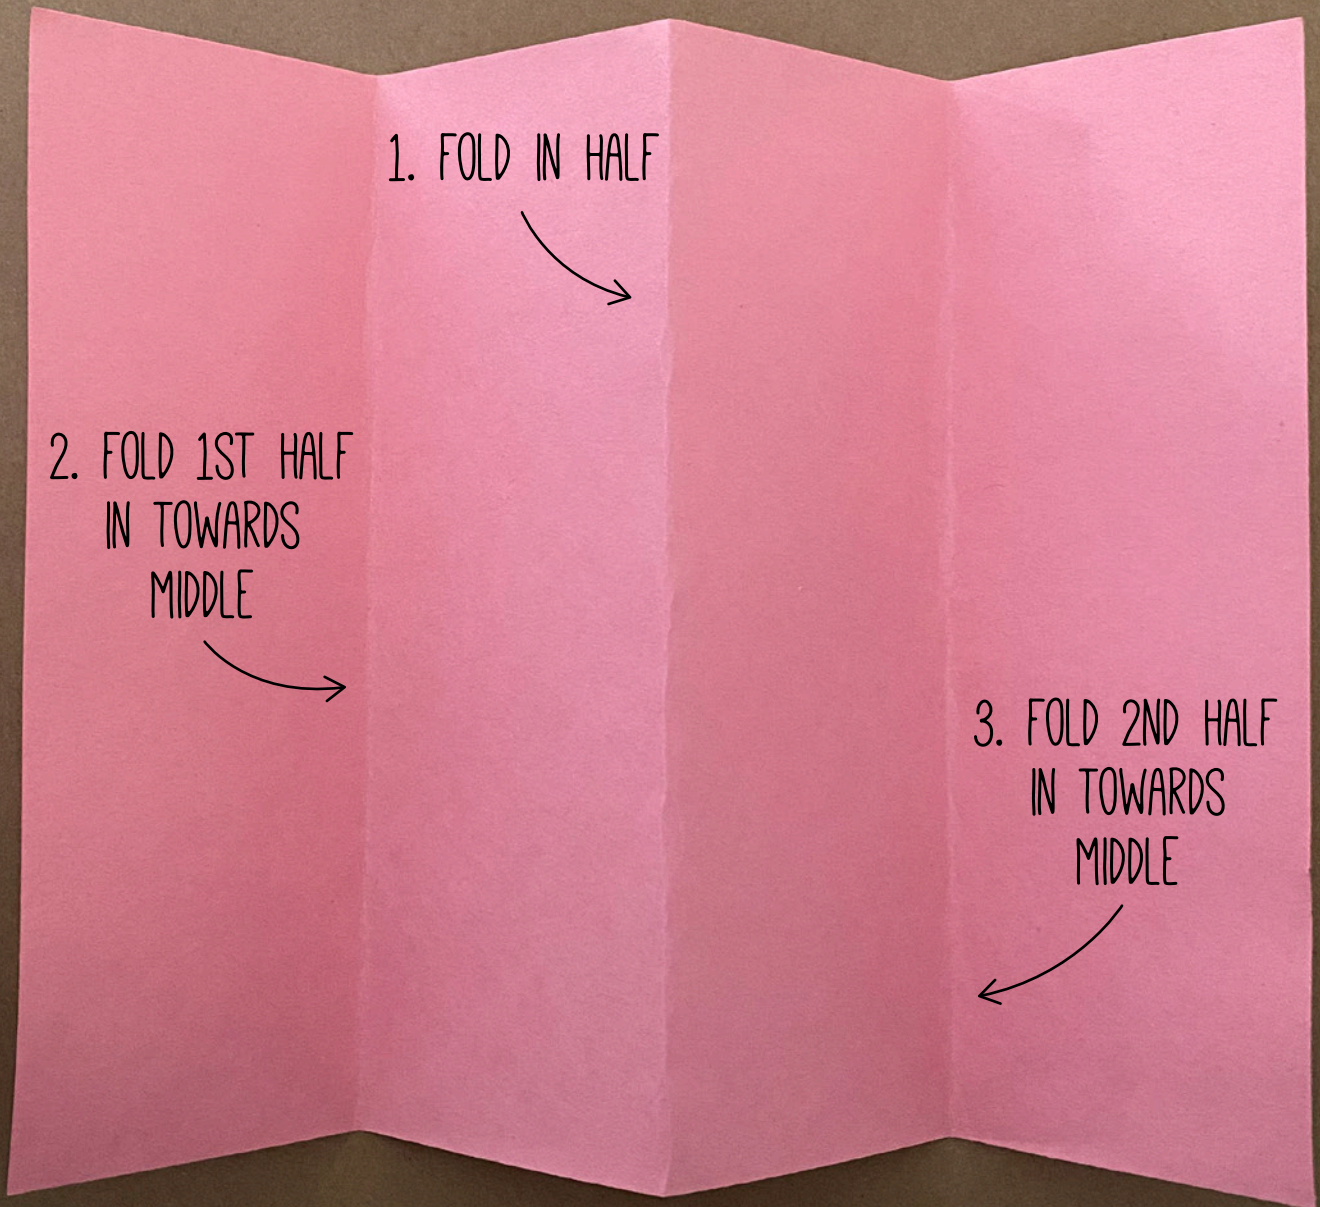 1. FOLD IN HALF
2. FOLD 1ST HALF
IN TOWARDS
MIDDLE
3. FOLD 2ND HALF
IN TOWARDS
MIDDLE